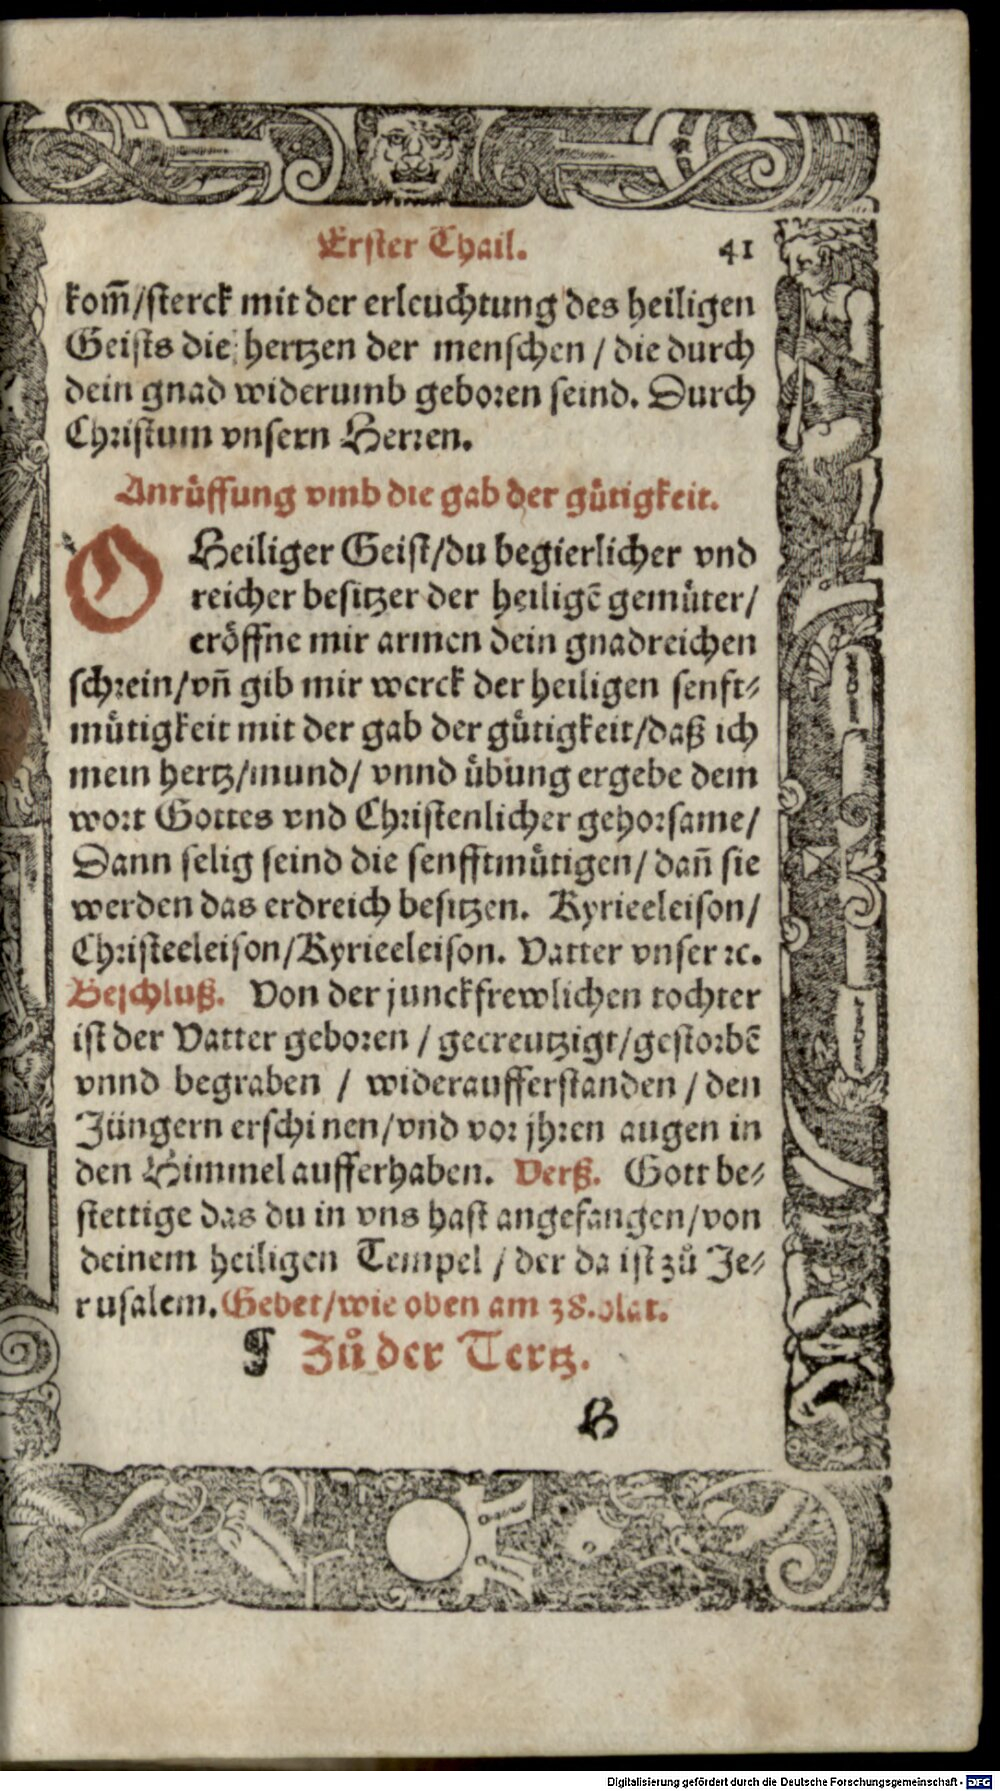 Erster Thail. 41
kom̄/sterck mit der erleuchtung des heiligen
Geists die hertzen der menschen / die durch
dein gnad widerumb geboren seind. Durch
Christum vnsern Herren.
Anrüffung vmb die gab der gütigkeit.
O Heiliger Geist/du begierlicher vnd
reicher besitzer der heiligē gemüter/
eröffne mir armen dein gnadreichen
schrein/vn̄ gib mir werck der heiligen senft⸗
mütigkeit mit der gab der gütigkeit/daß ich
mein hertz/mund/ vnnd übung ergebe dem
wort Gottes vnd Christenlicher gehorsame/
Dann selig seind die senfftmütigen/ dan̄ sie
werden das erdreich besitzen. Kyrieeleison/
Christeeleison/Kyrieeleison. Vatter vnser ꝛc.
Beschluß. Von der junckfrewlichen tochter
ist der Vatter geboren / gecreutzigt/gestorbē
vnnd begraben / wideraufferstanden / den
Jüngern erschinen/vnd vor jhren augen in
den Himmel aufferhaben. Verß. Gott be⸗
stettige das du in vns hast angefangen/von
deinem heiligen Tempel / der da ist zů Je⸗
rusalem. Gebet/wie oben am 38. blat.
¶ Zů der Tertz.
H
Digitalisierung gefördert durch die Deutsche Forschungsgemeinschaft - DFG